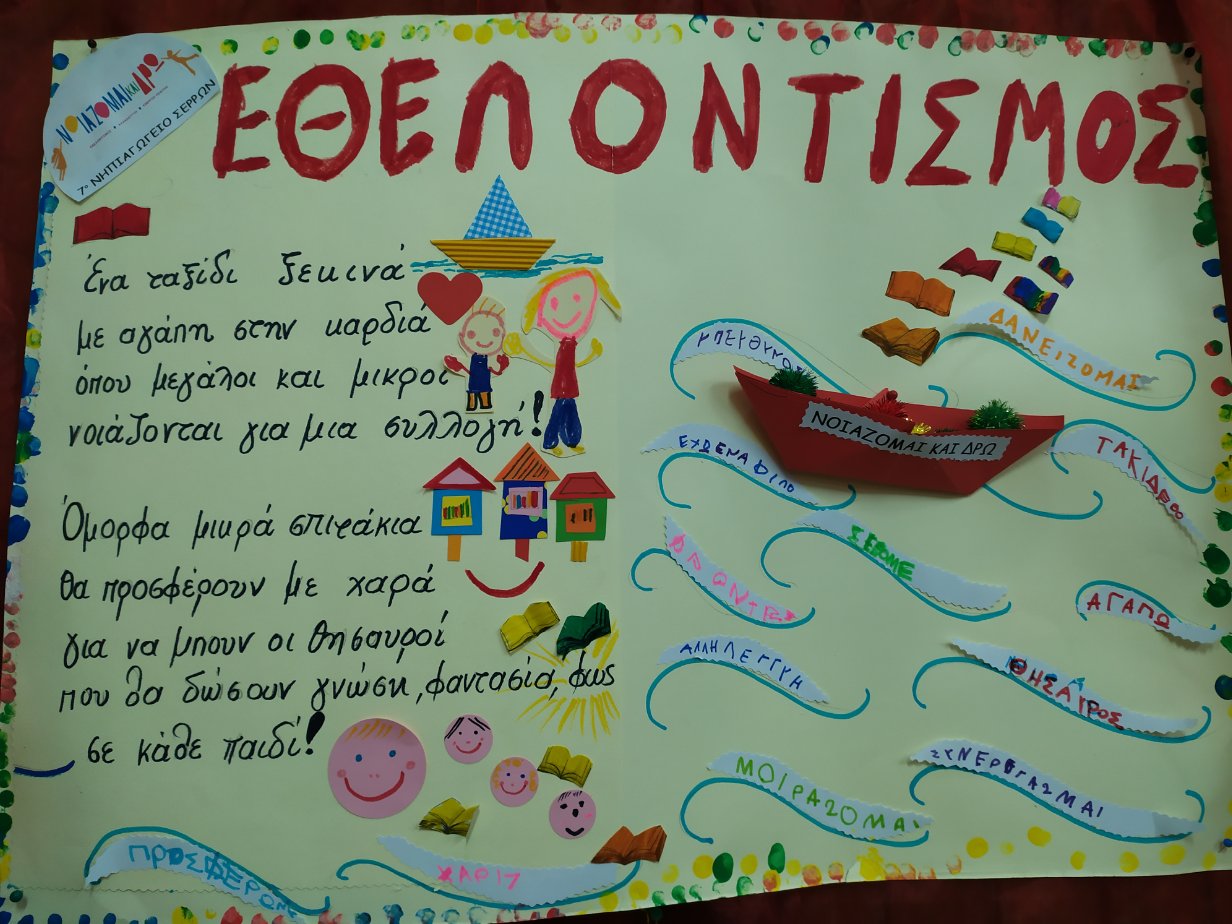 ΝΟΙΑΖΟΜΑΙ ΚΑΙ ΔΡΩ
7ο ΝΗΠΙΑΓΩΓΕΙΟ ΣΕΡΡΩΝ
ΕΘΕΛΟΝΤΙΣΜΟΣ
Ένα ταξίδι ξεκινά
με αγάπη στην καρδιά
όπου μεγάλοι και μικροί
νοιάζονται για μια συλλογή!
Όμορφα μικρά σπιτάκια
θα προσφέρουν με χαρά
για να μπουν οι θησαυροί
που θα δώσουν γνώση, φαντασία, φως
σε κάθε παιδί!
ΠΡΟΣΦΕΡΩ
ΔΑΝΕΙΖΟΜΑΙ
ΝΟΙΑΖΟΜΑΙ ΚΑΙ ΔΡΩ
ΤΑΚΙΔΕΦΩ
ΕΧΩ ΕΝΑ ΦΙΛΟ
ΣΕΒΟΜΕ
ΑΓΑΠΩ
ΑΛΛΗΛΕΓΓΥΗ
ΘΗΣΑΥΡΟΣ
ΜΟΙΡΑΖΟΜΑΙ